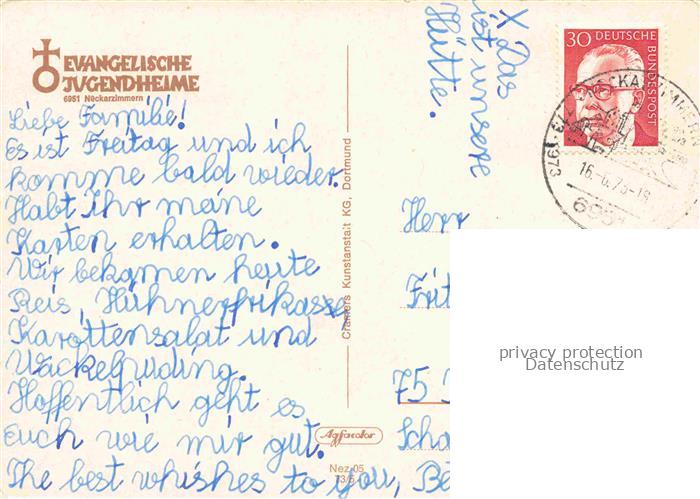 EVANGELISCHE
JUGENDHEIME
6951 Neckarzimmern
Liebe Familie!
Es ist Freitag und ich
komme bald wieder.
Habt Ihr meine
Karten erhalten.
Wir bekamen heute
Reis, Hühnerfrikasse,
Karottensalat und
Wackelpuding.
Hoffentlich geht es
euch wie mir gut.
The best whishes to you, Be
X Das
ist unsere
Hütte.
Cramers Kunstanstalt KG, Dortmund
Agfacolor
Nez 05
30 DEUTSCHE
BUNDESPOST
1973
Herr
Frit
75
Scha
privacy protection
Datenschutz